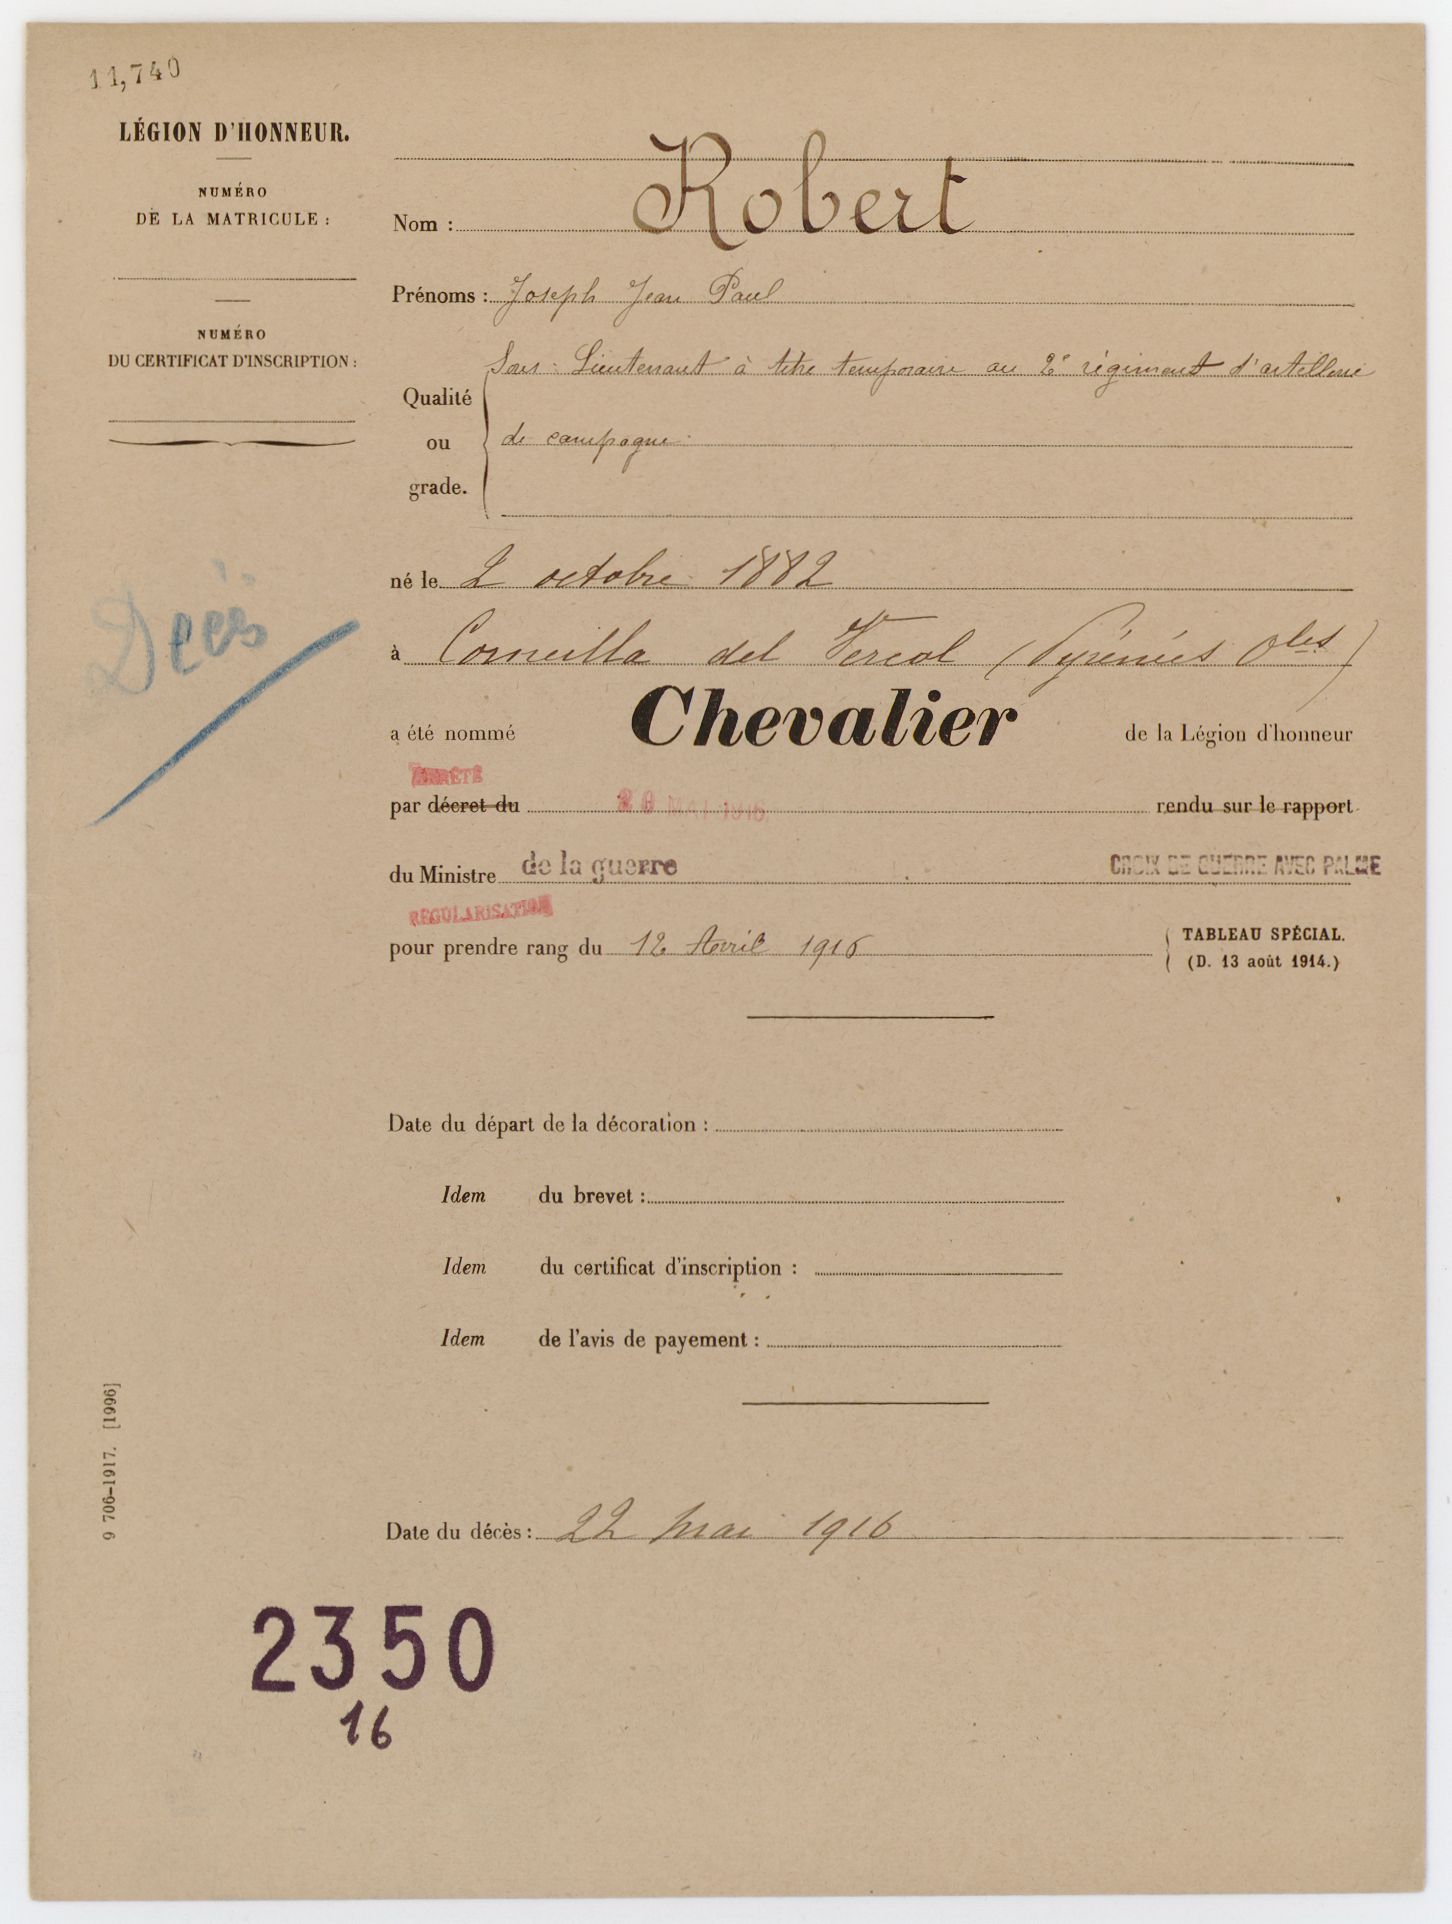 11,740
LÉGION D'HONNEUR.
NUMÉRO
DE LA MATRICULE :
NUMÉRO
DU CERTIFICAT D'INSCRIPTION :
Décès
Nom : Robert
Prénoms : Joseph Jean Paul
Qualité
ou
grade.
Sous-Lieutenant à titre temporaire au 2e régiment d'artillerie
de campagne
né le 2 octobre 1882
à Corneilla del Vercol (Pyrénées Oles)
a été nommé Chevalier de la Légion d'honneur
ARRÊTÉ
par décret du 20 MAI 1916 rendu sur le rapport
du Ministre de la guerre CROIX DE GUERRE AVEC PALME
RÉGULARISATION
pour prendre rang du 12 Avril 1916
TABLEAU SPÉCIAL.
(D. 13 août 1914.)
Date du départ de la décoration :
Idem du brevet :
Idem du certificat d'inscription :
Idem de l'avis de payement :
9 706-1917. [1996]
Date du décès : 22 mai 1916
2350
16